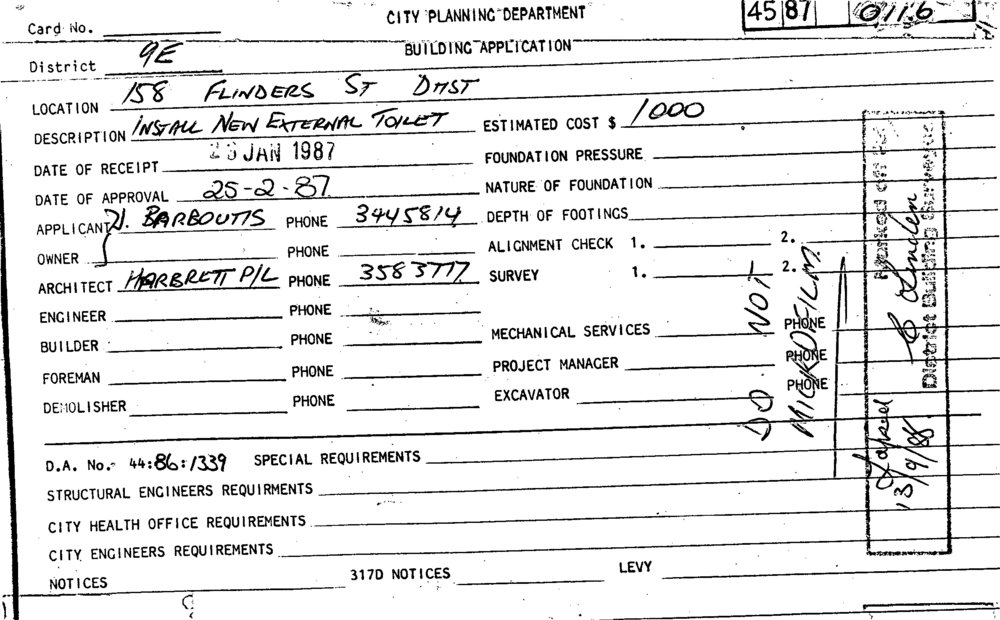 CITY PLANNING DEPARTMENT 45 87 0116
Card No.
BUILDING APPLICATION
District 9E
LOCATION 158 FLINDERS ST DHST
DESCRIPTION INSTALL NEW EXTERNAL TOILET ESTIMATED COST $ 1000
DATE OF RECEIPT JAN 1987 FOUNDATION PRESSURE
DATE OF APPROVAL 25-2-87 NATURE OF FOUNDATION
APPLICANT BARBOUTIS PHONE 3445814 DEPTH OF FOOTINGS
OWNER PHONE ALIGNMENT CHECK 1. 2.
ARCHITECT HARBRETT P/L PHONE 3583777 SURVEY 1. 2.
ENGINEER PHONE PHONE
BUILDER PHONE MECHANICAL SERVICES PHONE
FOREMAN PHONE PROJECT MANAGER PHONE
DEMOLISHER PHONE EXCAVATOR
DO NOT
MICROFILM
Marked off by
C Linden
District Building Surveyor
Lapsed
13/9/88
D.A. No. 44:86:1339 SPECIAL REQUIREMENTS
STRUCTURAL ENGINEERS REQUIRMENTS
CITY HEALTH OFFICE REQUIREMENTS
CITY ENGINEERS REQUIREMENTS
NOTICES 317D NOTICES LEVY